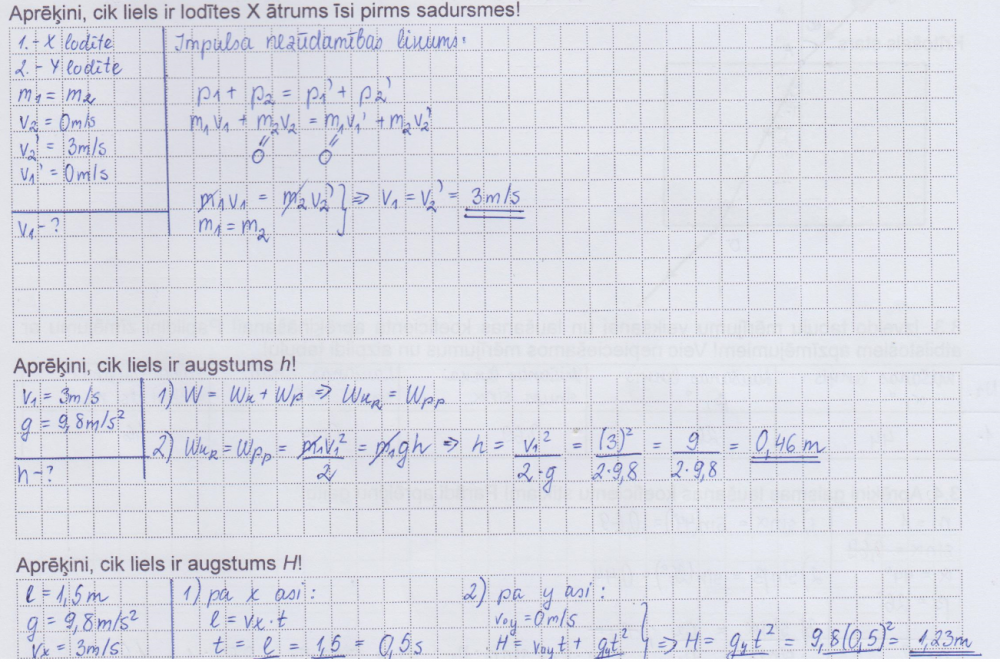 Aprēķini, cik liels ir lodītes X ātrums īsi pirms sadursmes!
1.- X lodīte
2.- Y lodīte
m₁ = m₂
v₂ = 0m/s
v₂' = 3m/s
v₁' = 0m/s
v₁ - ?
Impulsa nezūdamības likums:
p₁ + p₂ = p₁' + p₂'
m₁v₁ + m₂v₂ = m₁v₁' + m₂v₂'
0 0
m₁v₁ = m₂v₂' } ⇒ v₁ = v₂' = 3 m/s
m₁ = m₂
Aprēķini, cik liels ir augstums h!
v₁ = 3m/s
g = 9,8m/s²
h - ?
1) W = Wk + Wp ⇒ WkR = Wpp
2) WkR = Wpp = m₁v₁²/2 = m₁gh ⇒ h = v₁²/2·g = (3)²/2·9,8 = 9/2·9,8 = 0,46 m
Aprēķini, cik liels ir augstums H!
l = 1,5m
g = 9,8m/s²
vx = 3m/s
1) pa x asi:
l = vx · t
t = l = 1,5 = 0,5s
2) pa y asi:
v₀y = 0m/s
H = v₀yt + gyt² } ⇒ H = gyt² = 9,8(0,5)² = 1,23m